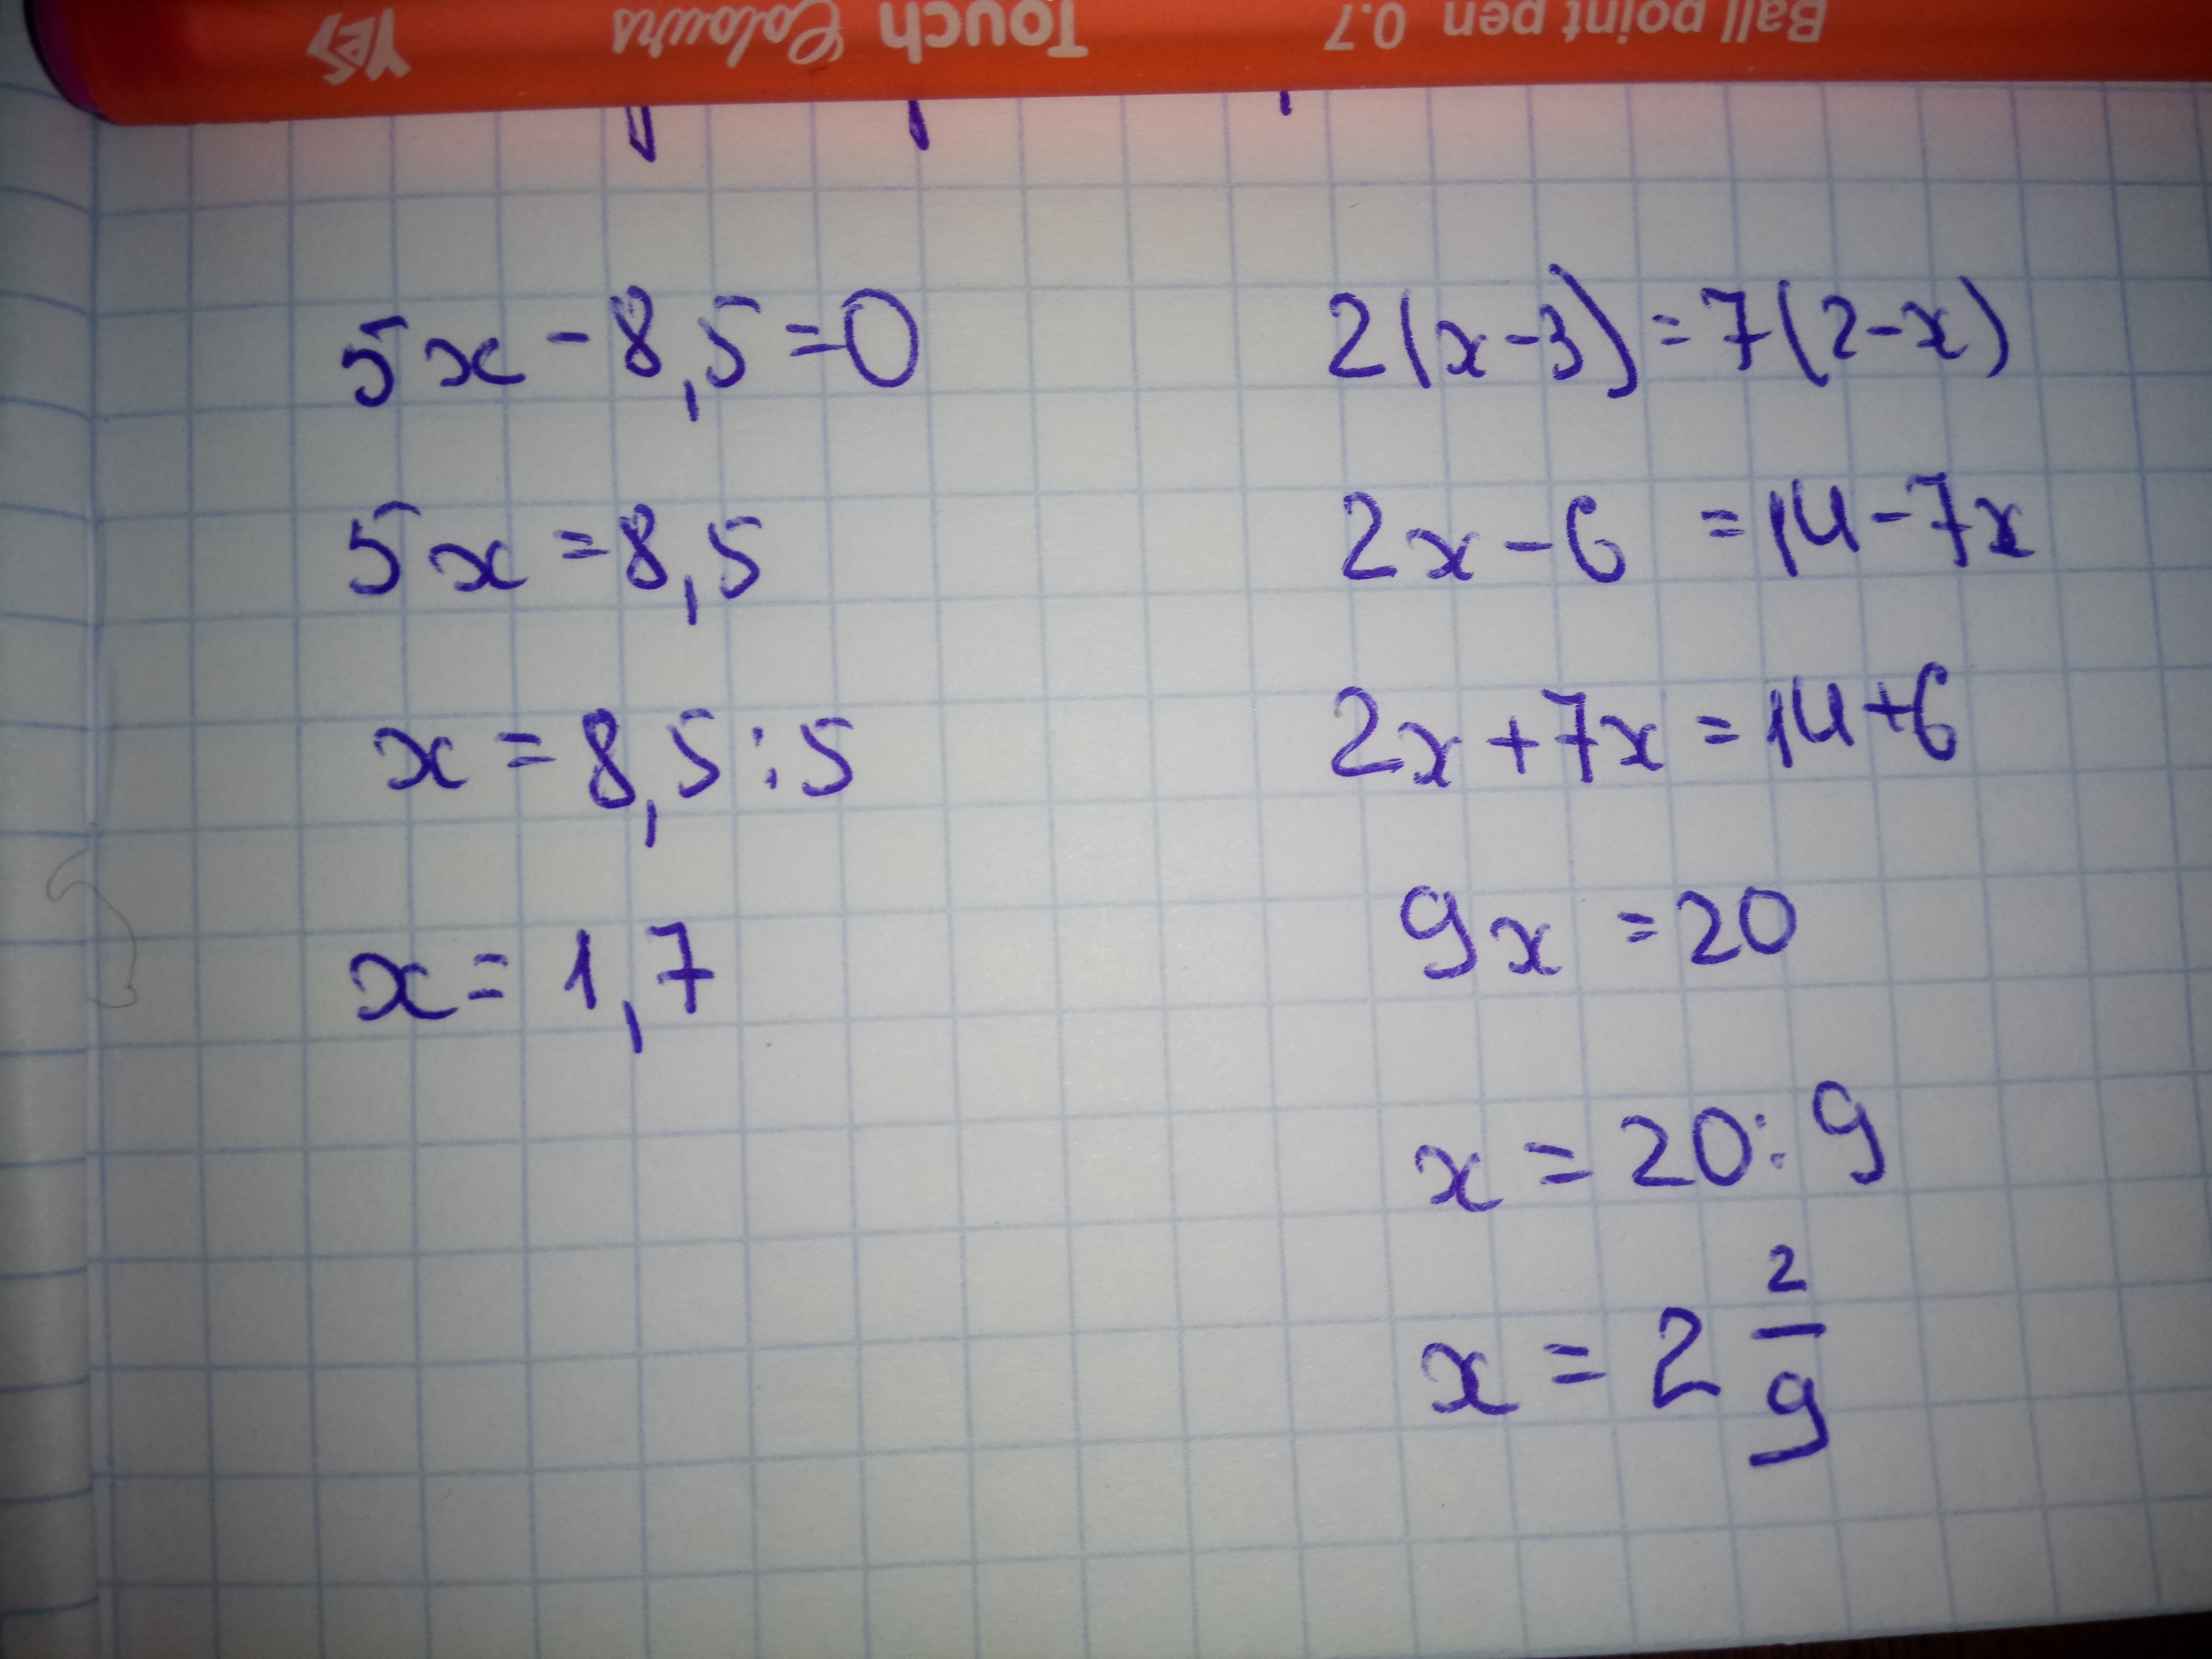 Ball point pen 0.7 Touch Colours YES
5x-8,5=0
5x=8,5
x=8,5:5
x=1,7
2(x-3)=7(2-x)
2x-6=14-7x
2x+7x=14+6
9x=20
x=20:9
x=2 2/9